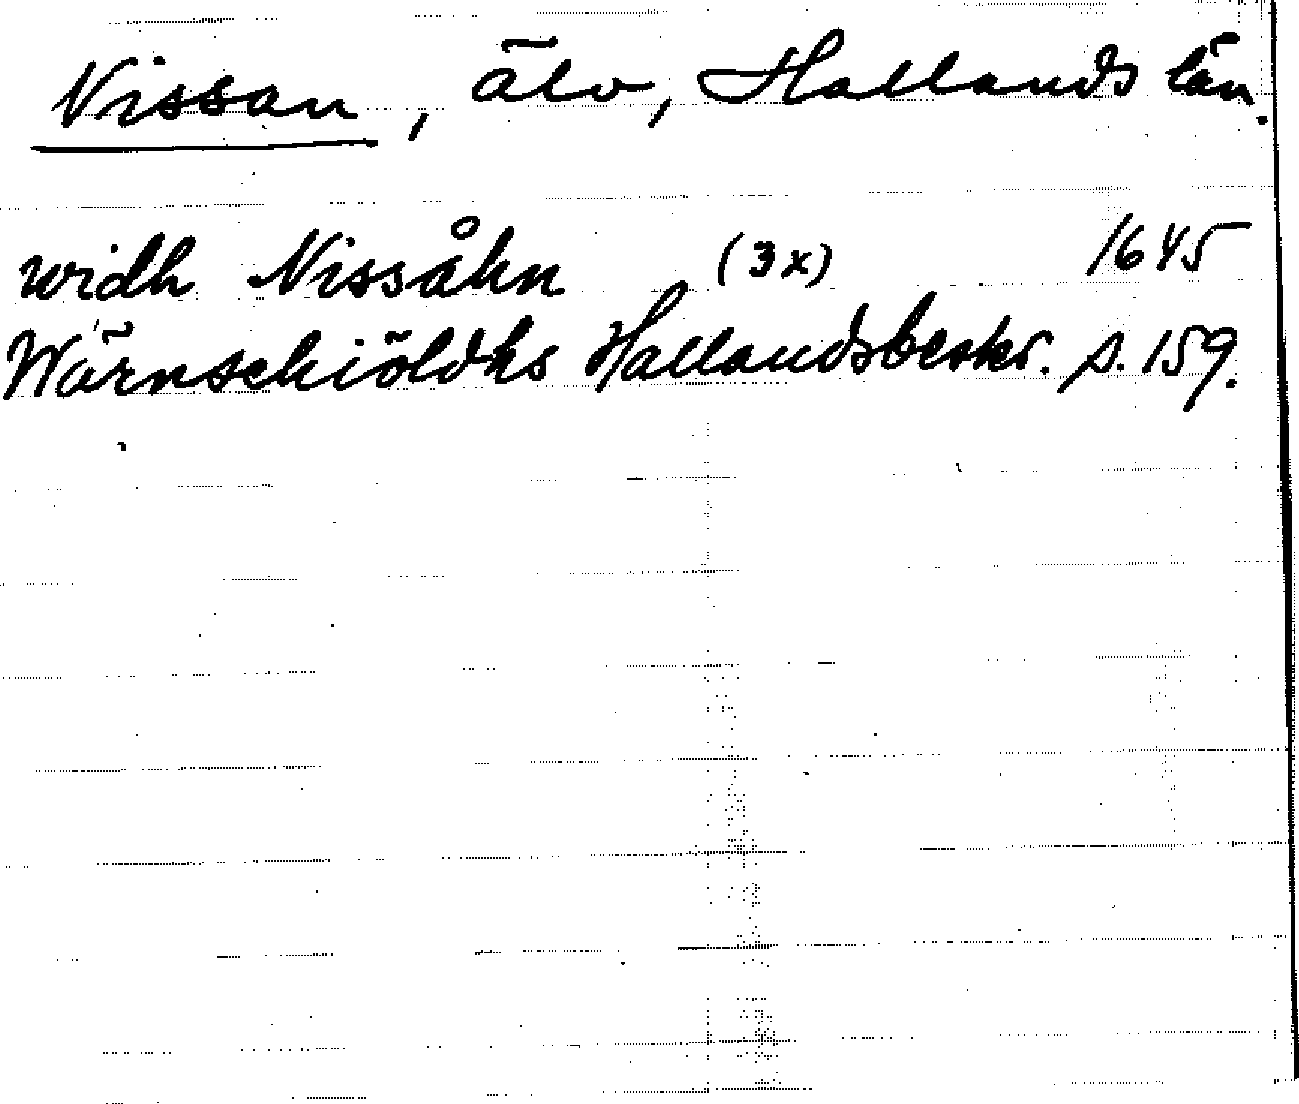 Nissan, älv, Hallands län.
widh Nissåhn (3x) 1645
Wärnschiöldhs Hallandsbeskr. s. 159.